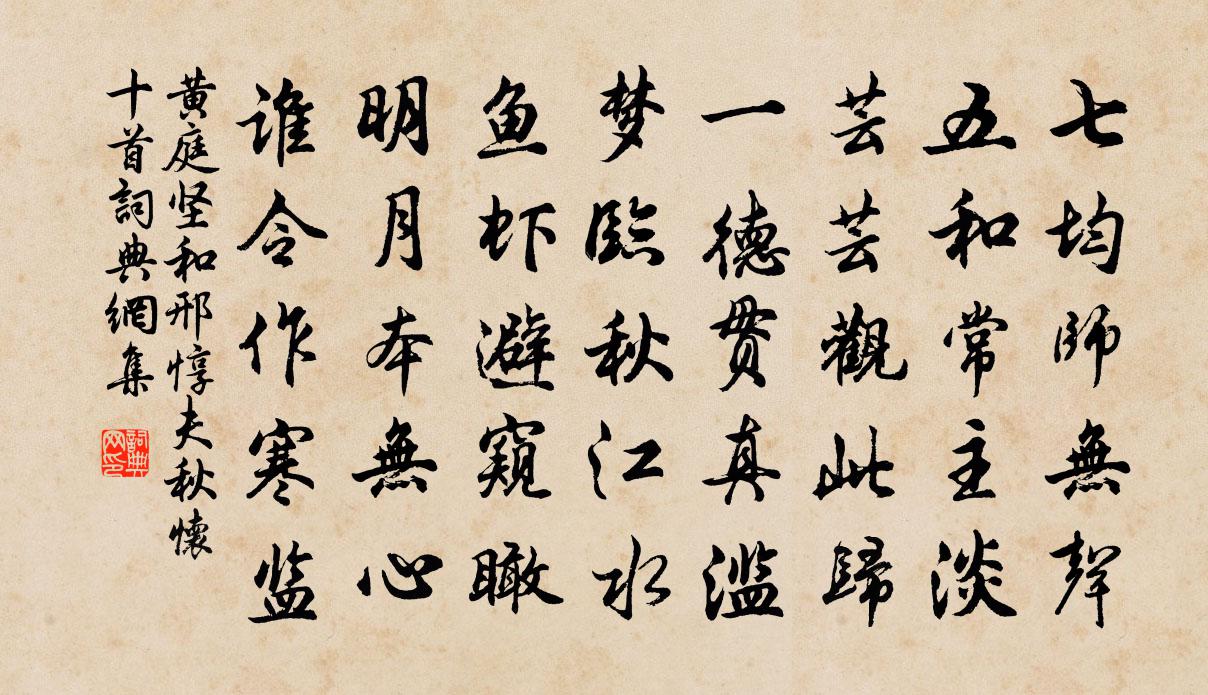 七均师無聲
五和常主淡
芸芸觀此歸
一德贯真滥
梦臨秋江水
鱼虾避窺瞰
明月本無心
谁令作寒监
黄庭坚和邢惇夫秋懷
十首詞典網集
詞典
网印